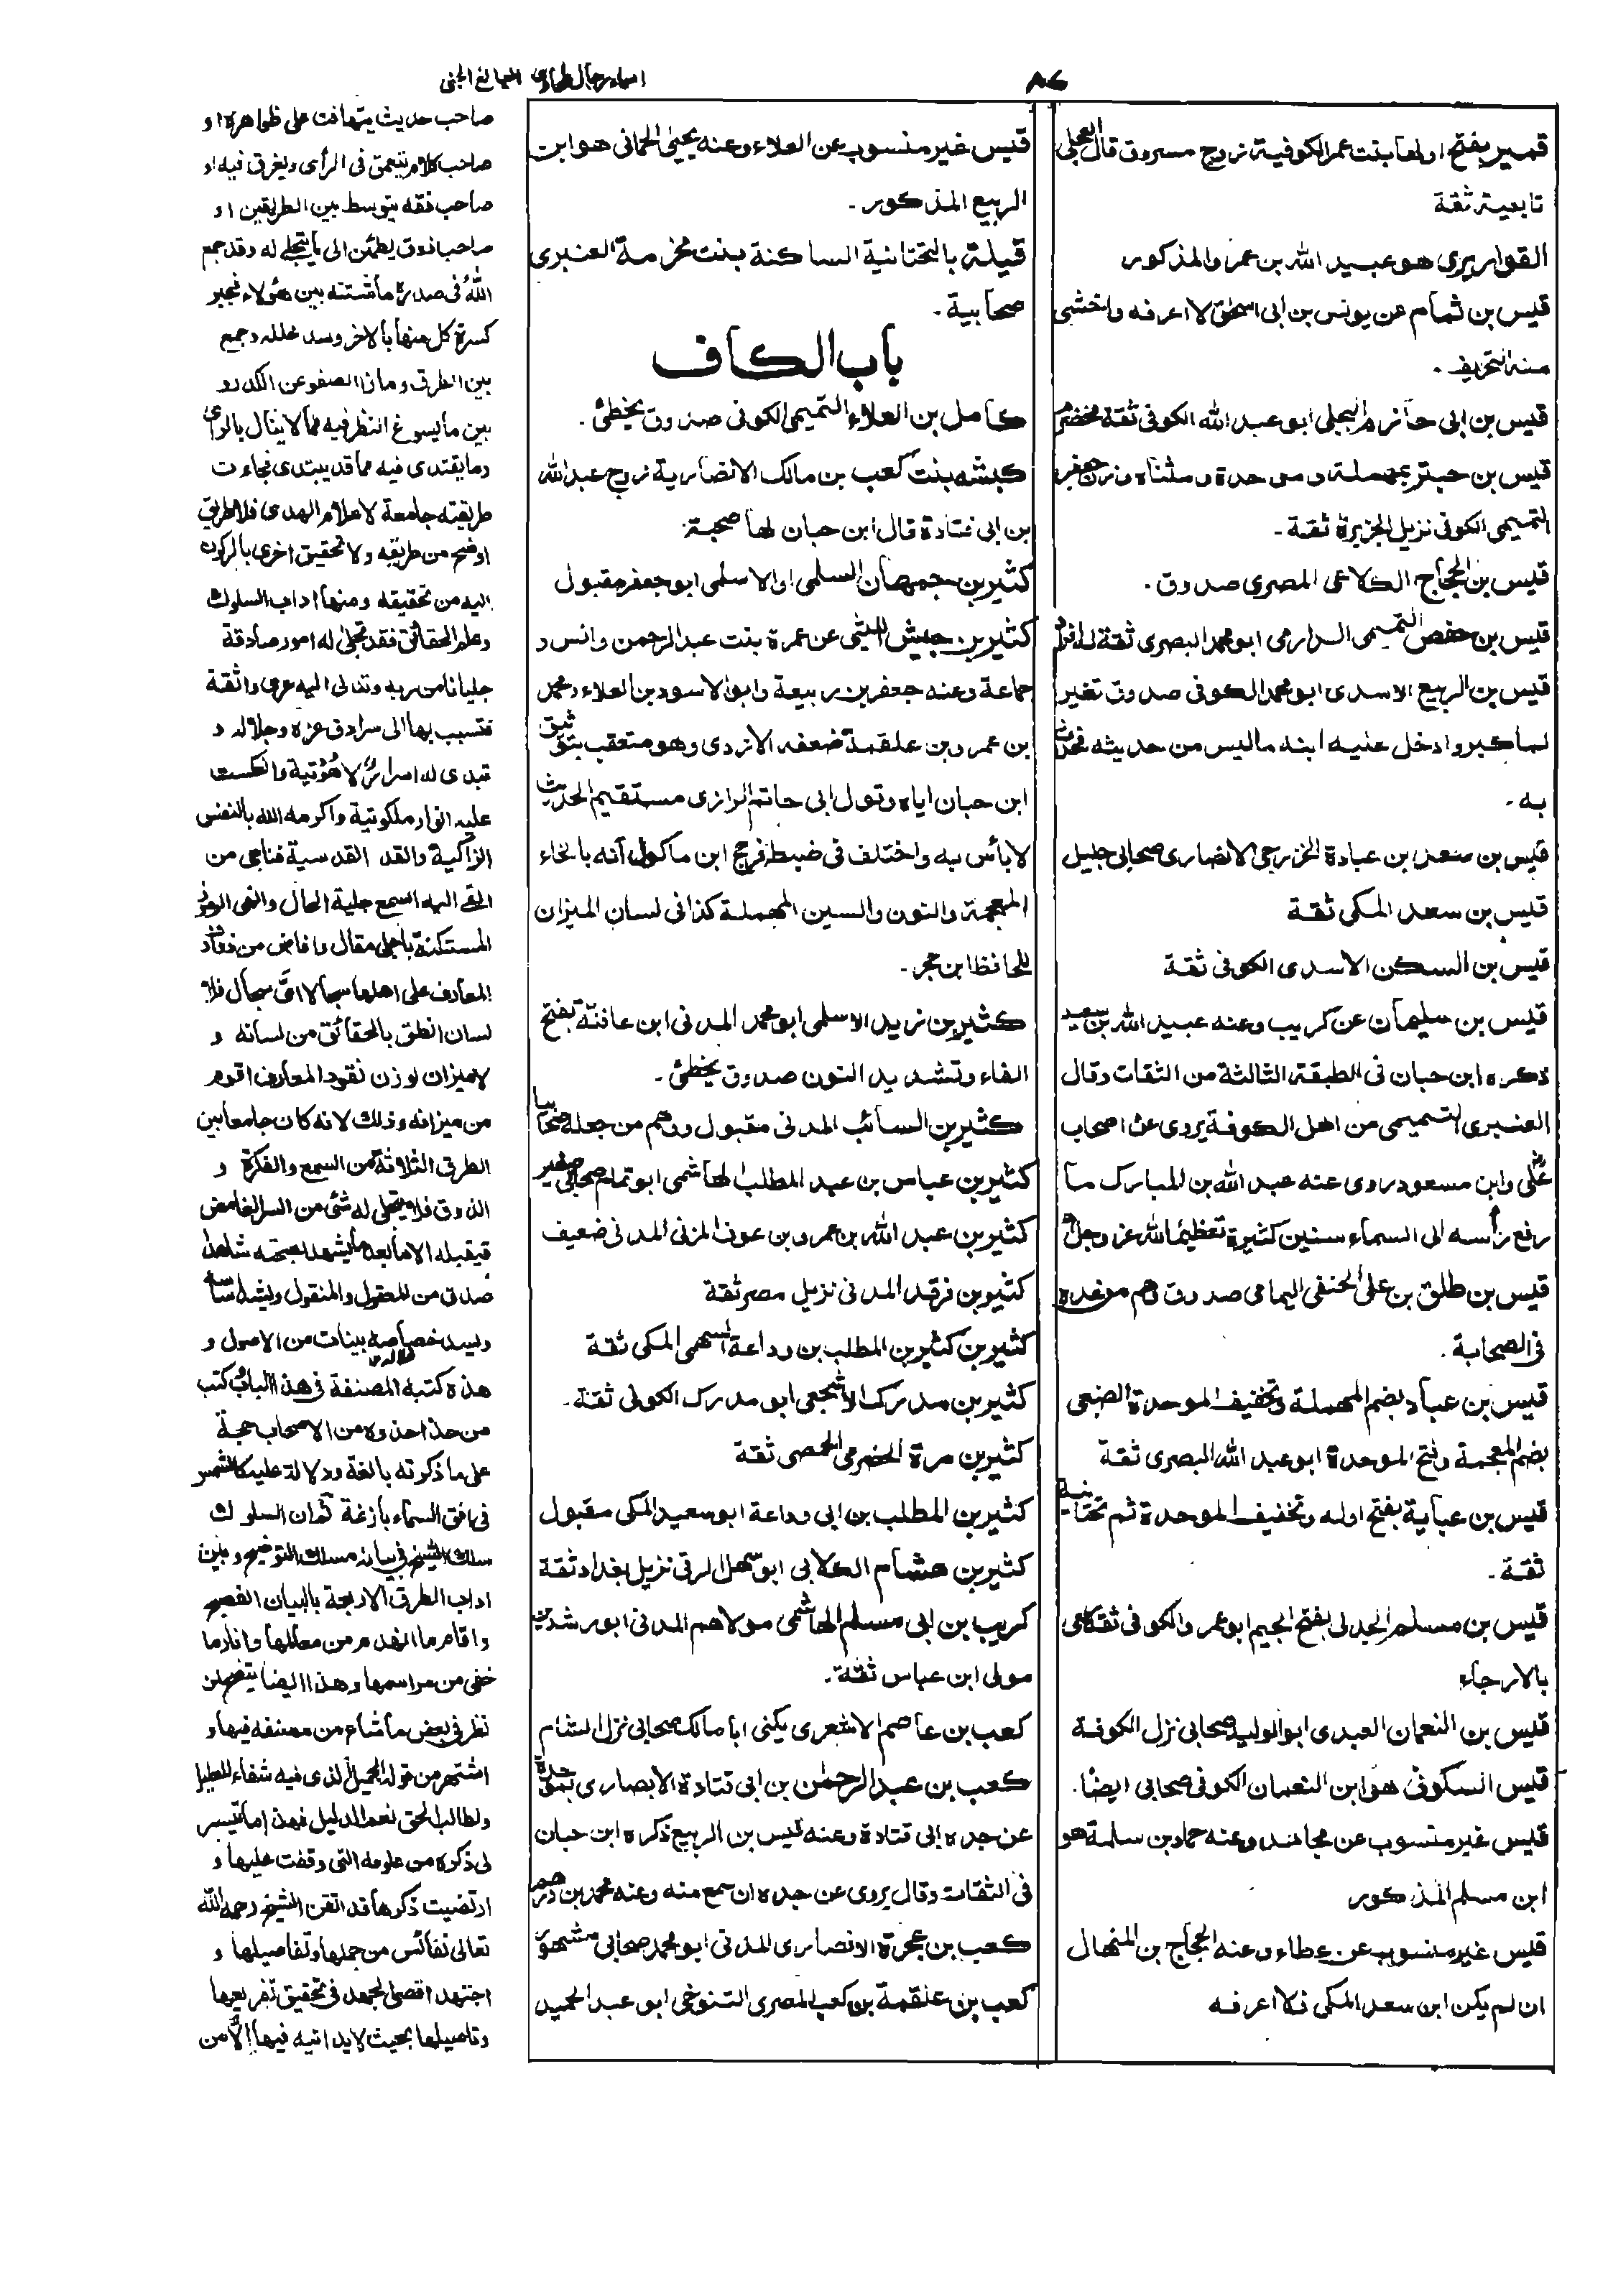 ٨٤
اسماء رجال طحاوى اليانع الجنى
قمير بفتح اولها بنت عمر الكوفية زوج مسروق قال العجلى
تابعية ثقة
القواريرى هو عبيد الله بن عمر والمذكور
قيس بن ثمام عن يونس بن ابى اسحق لا اعرفه واخشى
منه التحريف ۔
قيس بن ابى حازم البجلى ابو عبد الله الكوفى ثقة مخضرم
قيس بن حبتر بمهملة وموحدة ومثناه وزن جعفر
التميمى الكوفى نزيل الجزيرة ثقة ۔
قيس بن الحجاج الكلاعى المصرى صدوق ۔
قيس بن حفص التميمى الدارمى ابو محمد البصرى ثقة له افراد
قيس بن الربيع الاسدى ابو محمد الكوفى صدوق تغير
لما كبر وادخل عليه ابنه ما ليس من حديثه فحدث
به ۔
قيس بن سعد بن عبادة الخزرجى الانصارى صحابى جليل
قيس بن سعد المكى ثقة
قيس بن السكن الاسدى الكوفى ثقة
قيس بن سليمان عن كريب وعنه عبيد الله بن سعيد
ذكره ابن حبان فى الطبقة الثالثة من الثقات وقال
العنبرى التميمى من اهل الكوفة يروى عن اصحاب
على وابن مسعود روى عنه عبد الله بن المبارك ما
رفع رأسه الى السماء سنين كثيرة تعظيما لله عز وجل
قيس بن طلق بن على الحنفى اليمامى صدوق وهم من عده
فى الصحابة ۔
قيس بن عباد بضم المهملة وتخفيف الموحدة الضبعى
بضم المعجمة وفتح الموحدة ابو عبد الله البصرى ثقة
قيس بن عباية بفتح اوله وتخفيف الموحدة ثم تحتانية
ثقة ۔
قيس بن مسلم الجدلى بفتح الجيم ابو عمر والكوفى ثقة رمى
بالارجاء
قيس بن النعمان العبدى ابو الوليد صحابى نزل الكوفة
قيس السكونى هو ابن النعمان الكوفى صحابى ايضا ۔
قيس غير منسوب عن مجاهد وعنه حماد بن سلمة هو
ابن مسلم المذكور
قيس غير منسوب عن عطاء وعنه الحجاج بن المنهال
ان لم يكن ابن سعد المكى فلا اعرفه
قيس غير منسوب عن العلاء وعنه يحيى الحمانى هو ابن
الربيع المذكور ۔
قيلة بالتحتانية الساكنة بنت مخرمة العنبرى
صحابية ۔
باب الكاف
كامل بن العلاء التميمى الكوفى صدوق يخطئ ۔
كبشه بنت كعب بن مالك الانصارية زوج عبد الله
بن ابى قتادة قال ابن حبان لها صحبة
كثير بن جمهان السلمى او الاسلمى ابو جعفر مقبول
كثير بن جيش الليثى عن عمرة بنت عبد الرحمن وانس و
جماعة وعنه جعفر بن ربيعة وابو الاسود بن العلاء ومحمد
بن عمرو بن علقمة ضعفه الازدى وهو متعقب بتوثيق
ابن حبان اياه وقول ابى حاتم الرازى مستقيم الحديث
لا بأس به واختلف فى ضبطه فرجح ابن ماكولا انه بالخاء
المعجمة والنون والسين المهملة كذا فى لسان الميزان
للحافظ ابن حجر ۔
كثير بن زيد الاسلمى ابو محمد المدنى ابن مافنة بفتح
الفاء وتشديد النون صدوق يخطئ ۔
كثير بن السائب المدنى مقبول ووهم من جعله صحابيا
كثير بن عباس بن عبد المطلب الهاشمى ابو تمام صحابى صغير
كثير بن عبد الله بن عمرو بن عوف المزنى المدنى ضعيف
كثير بن فرقد المدنى نزيل مصر ثقة
كثير بن كثير بن المطلب بن وداعة السهمى المكى ثقة
كثير بن مدرك الاشجعى ابو مدرك الكوفى ثقة ۔
كثير بن مرة الحضرمى الحمصى ثقة
كثير بن المطلب بن ابى وداعة ابو سعيد المكى مقبول
كثير بن هشام الكلابى ابو سهل الرقى نزيل بغداد ثقة
كريب بن ابى مسلم الهاشمى مولاهم المدنى ابو رشدين
مولى ابن عباس ثقة ۔
كعب بن عاصم الاشعرى يكنى ابا مالك صحابى نزل الشام
كعب بن عبد الرحمن بن ابى قتادة الانصارى
عن جده ابى قتادة وعنه قيس بن الربيع ذكره ابن حبان
فى الثقات وقال يروى عن جده ان سمع منه وعنه محمد بن درهم
كعب بن عجرة الانصارى المدنى ابو محمد صحابى مشهور
كعب بن علقمة بن كعب المصرى التنوخى ابو عبد الحميد
صاحب حديث يتهافت على ظواهره او
صاحب كلام يتعمق فى الرأى ويغرق فيه او
صاحب فقه يتوسط بين الطريقين او
صاحب ذوق يطمئن الى ما يتجلى له وقد جمع
الله فى صدره ما شتته بين هؤلاء فجبر
كسرة كل منها بالاخر وسد خلله وجمع
بين الطرق وماز الصفو عن الكدر و
بين ما يسوغ النظر فيه مما لا ينال بالراى
وما يقتدى فيه مما قد يبتدى فجاءت
طريقته جامعة لاعلام الهدى فلا طريق
اوضح من طريقه ولا تحقيق احرى بالركون
اليه من تحقيقه ومنها اداب السلوك
وعلم الحقائق فقد تجلى له امور صادقة
جليانا من ربه وتدلى اليه عرى واثقة
فتسبب بها الى سرادق عزه وجلاله و
تبدى له اسرار لاهوتية وانعكست
عليه انوار ملكوتية واكرمه الله بالنفس
الزاكية والقد القدسية فناجى من
القى اليه السمع جلية الحال والقى الرموز
المستكنة باجلى مقال وافاض من ذوقه
المعارف على اهلها سجالا اى سجال فلا
لسان انطق بالحقائق من لسانه و
لا ميزان لوزن نقود المعارف اقوم
من ميزانه وذلك لانه كان جامعا بين
الطرق الثلاثة من السمع والفكرة و
الذوق فلا يتجلى له شئ من السر الغامض
فيقبله الا ما بعد ما يشهد لصحته شاهدا
صدق من المعقول والمنقول ويشد اساسه
ويسد خصاصه ببينات من الاصول و
هذه كتبه المصنفة فى هذا الباب وكتب
من حذا حذوه من الاصحاب حجة
على ما ذكرته بالغة ودلالة عليه كالشمس
فى افق السماء بازغة كمان السلوك
سلك الشيخ فى بيانه مسلك التوضيح وبين
اداب الطرق الاربعة بالبيان الفصيح
واقام ما انهدم من معالمها وانار ما
خفى من مراسمها وهذا ايضا يتضح لمن
نظر فى بعض ما شاع من مصنفه فيها و
اشتهر من قوله الجميل الذى فيه شفاء للعليل
ولطالب الحق نعم الدليل فهذا ما تيسر
لى ذكره من علومه التى وقفت عليها و
ارتضيت ذكرها قد اتقن الشيخ رحمه الله
تعالى نفائس من جملها وتفاصيلها و
اجتهد اقصى الجهد فى تحقيق تفريعها
وتاصيلها بحيث لا يدانيه فيها الا من